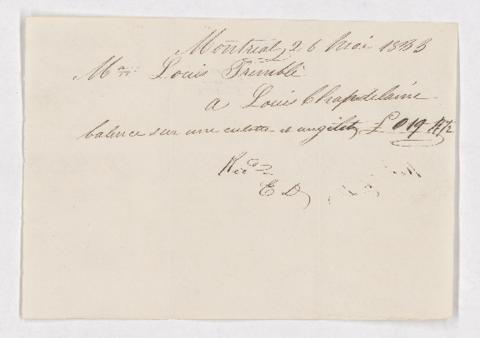 Montreal 26 Mai 1833
Mr. Louis Tremblé
a Louis Chapdelaine
balence sur une culotte et un gilet £ 0 19
Rec
E D